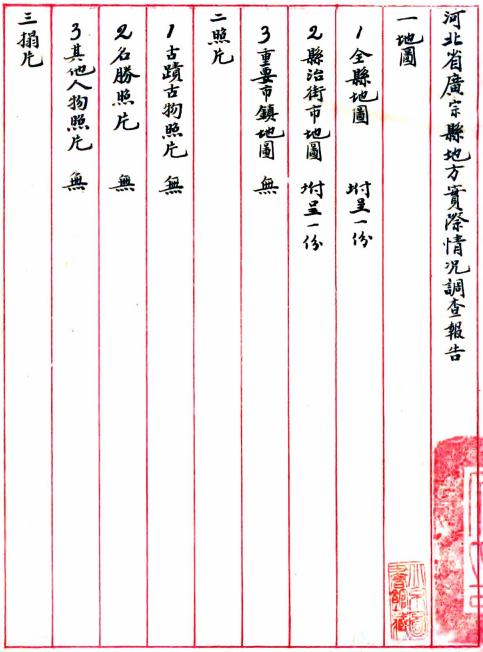 河北省廣宗縣地方實際情况調查報告
一地圖
1全縣地圖 坿呈一份
2縣治街市地圖 坿呈一份
3重要市鎮地圖 無
二照片
1古蹟古物照片 無
2名勝照片 無
3其他人物照片 無
三搨片